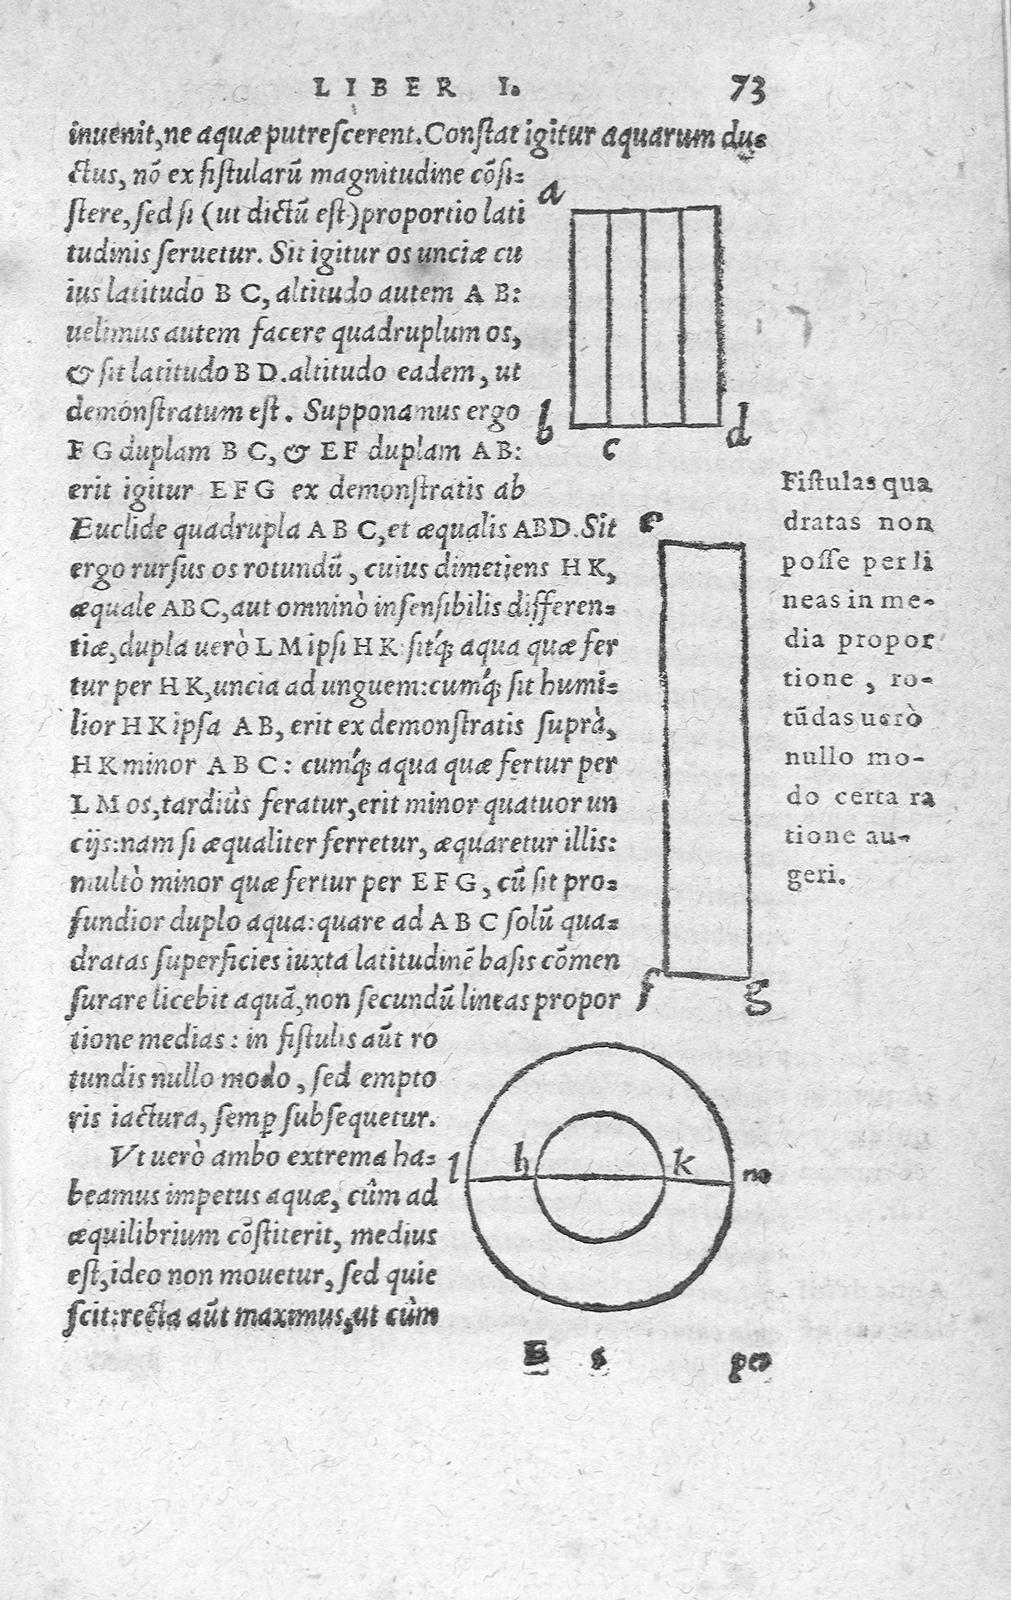 LIBER I. 73
inuenit, ne aquæ putrescerent. Constat igitur aquarum du-
ctus, nõ ex fistularũ magnitudine cõsi-
stere, sed si (ut dictũ est) proportio lati
tudinis seruetur. Sit igitur os unciæ cu
ius latitudo B C, altitudo autem A B:
uelimus autem facere quadruplum os,
& sit latitudo B D. altitudo eadem, ut
demonstratum est. Supponamus ergo
F G duplam B C, & E F duplam A B:
erit igitur E F G ex demonstratis ab
Euclide quadrupla A B C, et æqualis ABD. Sit
ergo rursus os rotundũ, cuius dimetiens H K,
æquale ABC, aut omninò insensibilis differen-
tiæ, dupla uerò L M ipsi H K sitq́; aqua quæ fer
tur per H K, uncia ad unguem: cumq́; sit humi-
lior H K ipsa A B, erit ex demonstratis suprà,
H K minor A B C: cumq́; aqua quæ fertur per
L M os, tardiùs feratur, erit minor quatuor un
cijs: nam si æqualiter ferretur, æquaretur illis:
multò minor quæ fertur per E F G, cũ sit pro-
fundior duplo aqua: quare ad A B C solũ qua-
dratas superficies iuxta latitudinẽ basis cõmen
surare licebit aquã, non secundũ lineas propor
tione medias: in fistulis aũt ro
tundis nullo modo, sed empto
ris iactura, semp subsequetur.
Vt uerò ambo extrema ha-
beamus impetus aquæ, cùm ad
æquilibrium cõstiterit, medius
est, ideo non mouetur, sed quie
scit: recta aũt maximus, ut cùm
E s per
a
b
c
d
Fistulas qua
dratas non
posse per li
neas in me-
dia propor
tione, ro-
tũdas uerò
nullo mo-
do certa ra
tione au-
geri.
e
f
g
l h k m